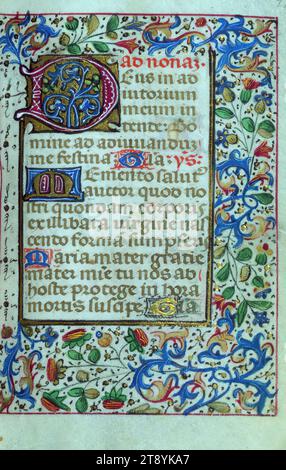 ad nonaz
Deus in ad
iutorium
meum in
tende: Do
mine ad adiuuanduz
me festina Gla. ys:
Memento salut
auctor quod no
stri quondam corpor
ex illibata uirgine nas
cendo formā sumpse
Maria mater gratie
mater mie tu nos ab
hoste protege in hora
mortis suscipe Gla
alamy - 2T8YKA7